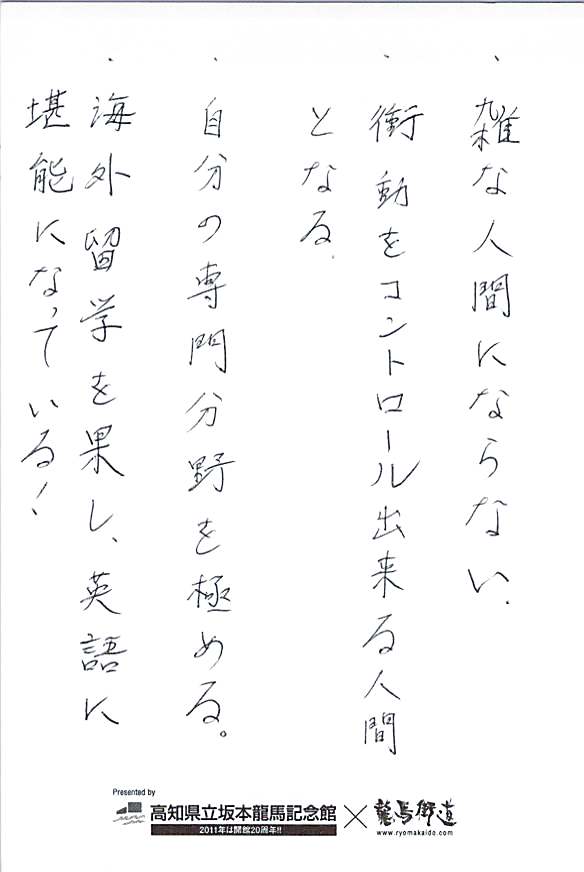 ・雑な人間にならない.
・衝動をコントロール出来る人間
となる.
・自分の専門分野を極める。
・海外留学を果し、英語に
堪能になっている!
Presented by
高知県立坂本龍馬記念館
2011年は開館20周年!!
×
龍馬街道
www.ryomakaido.com